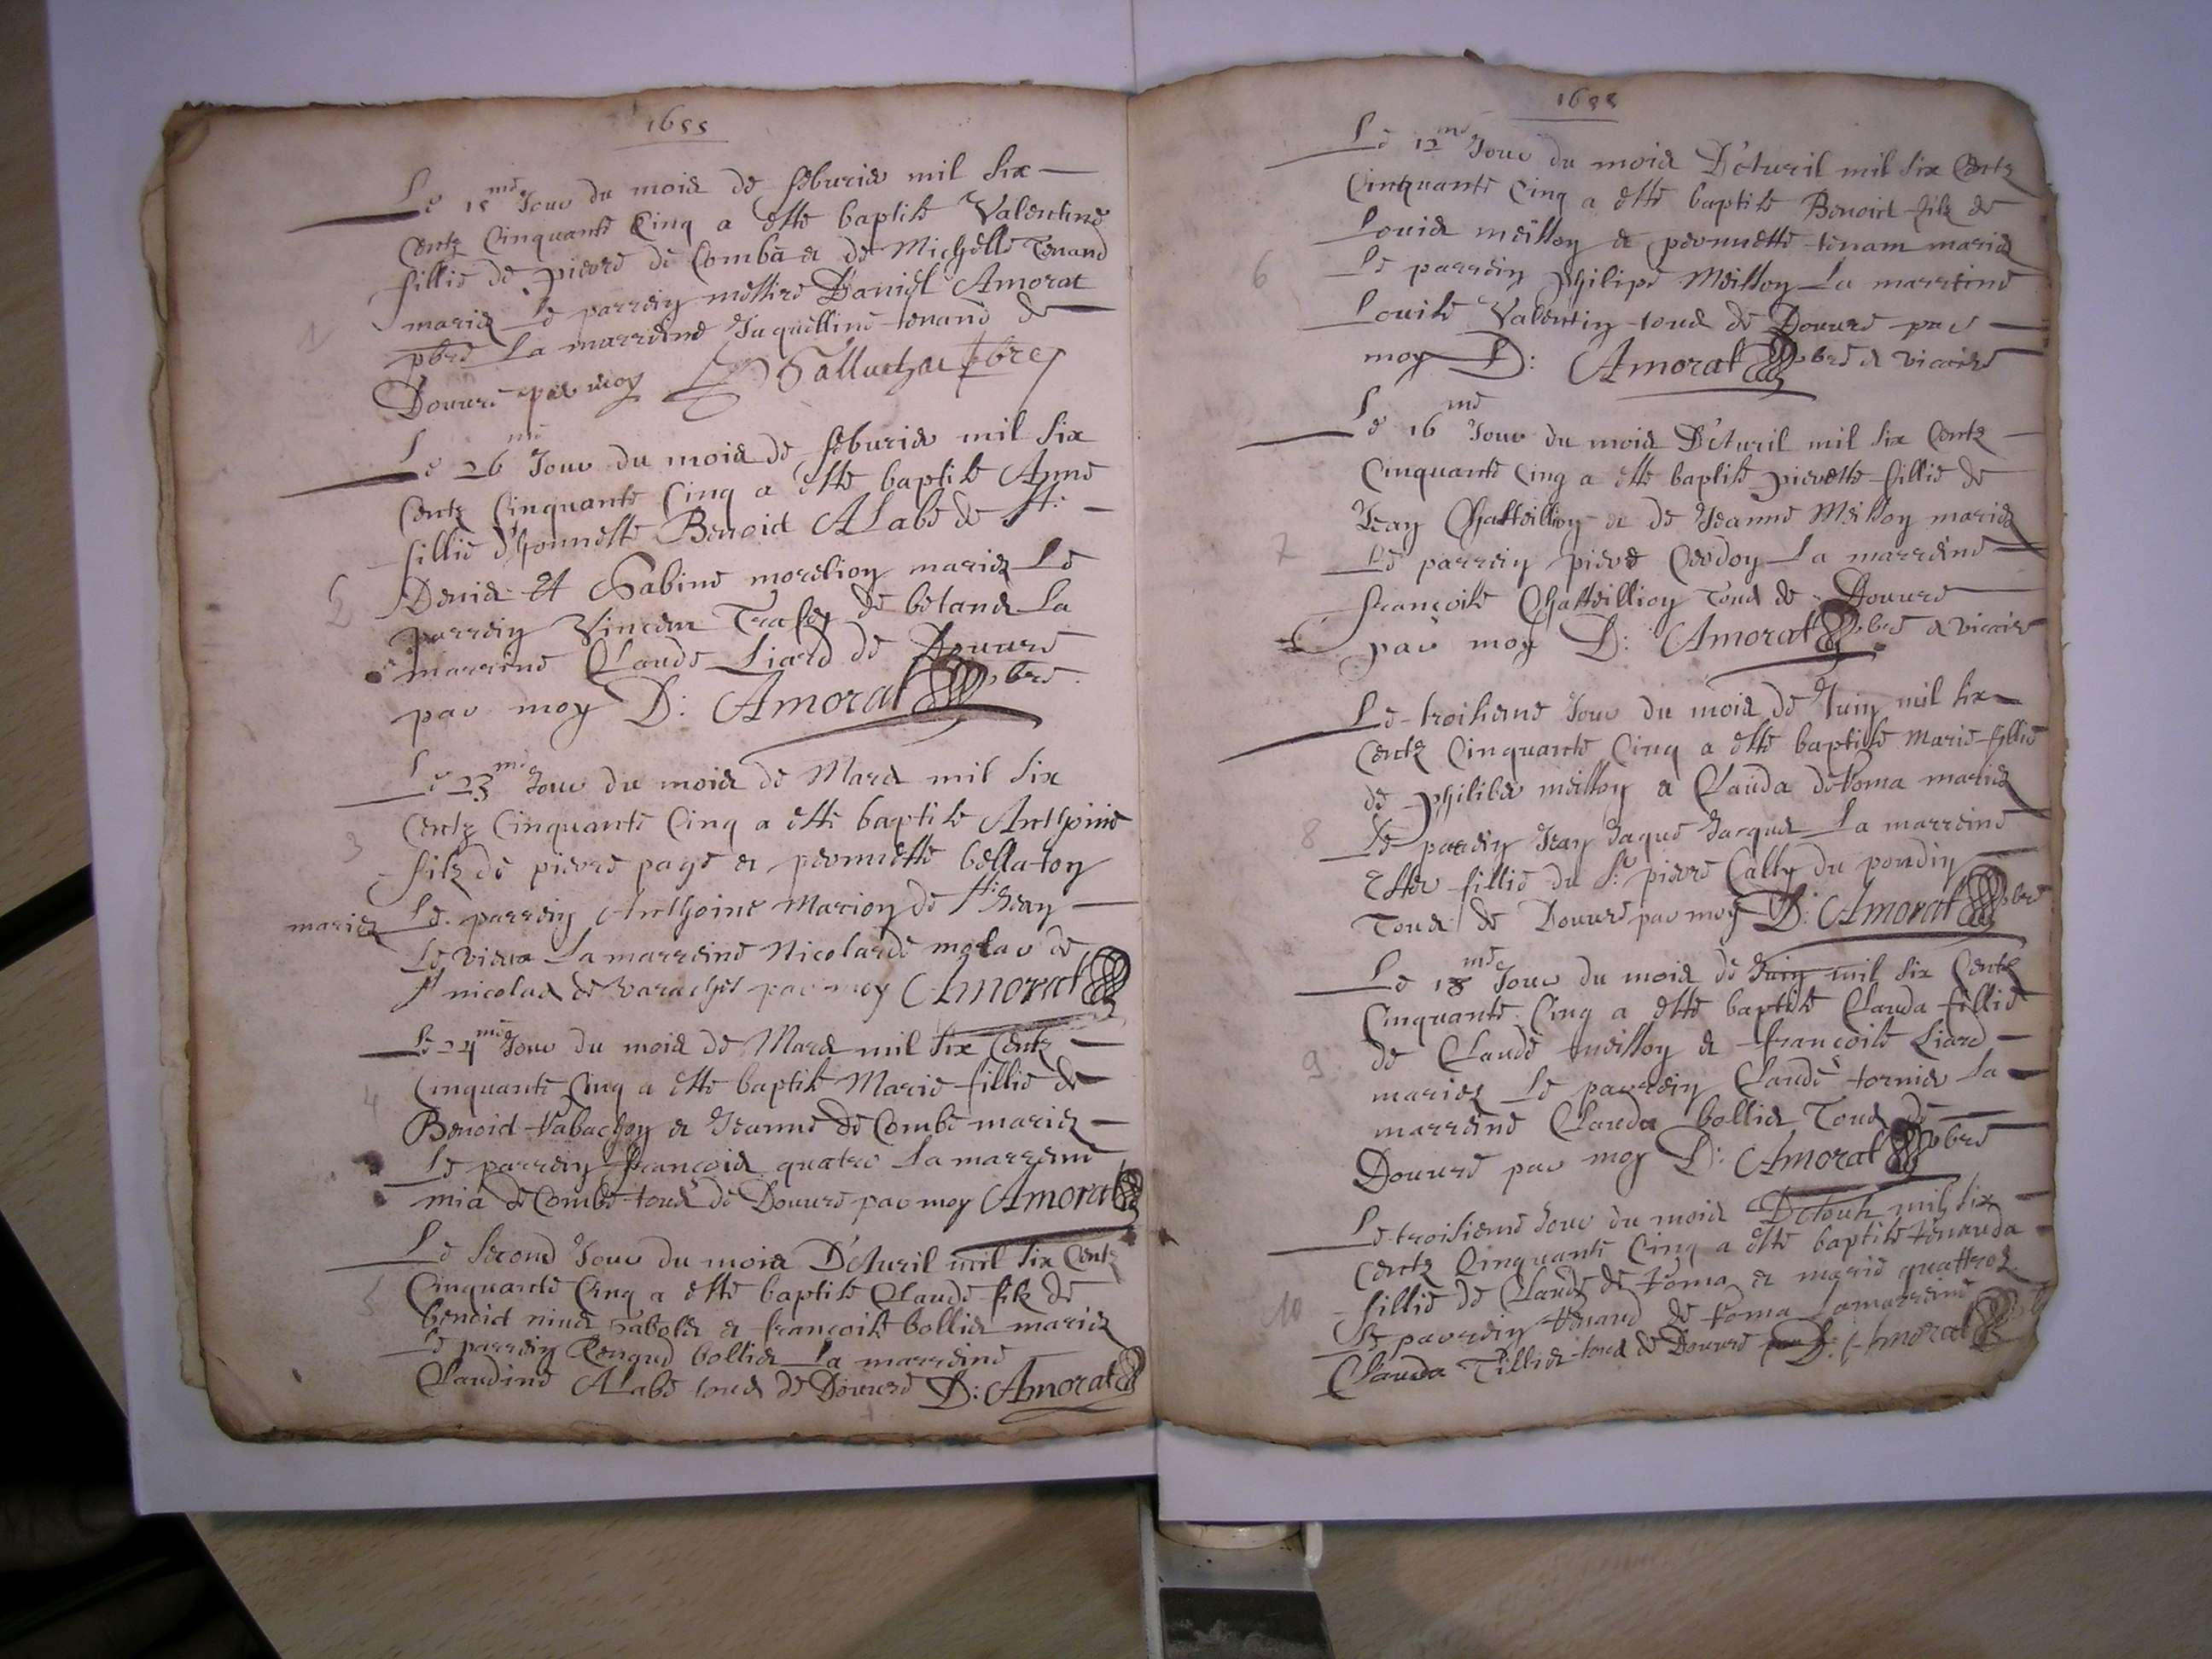 1655
Le 15me Jour du mois de feburier mil six
Centz Cinquante Cinq a este baptise Valentine
fillie de pierre de Comba et de Michelle Tenand
maries Le parrein messire Daniel Amorat
pbre La marreine Jaquelline tenand de
Douure par moy
Le 26me Jour du mois de feburier mil six
Centz Cinquante Cinq a este baptise Anne
fillie d'honneste Benoid ALabe de St:
Denis Et Sabine morelion maries Le
parrein Vincent de La
marrine Claude Liard de Douure
par moy D: Amorat pbre.
Le 23me Jour du mois de Mars mil six
Centz Cinquante Cinq a este baptise Anthoine
filz de pierre page et peronnette bellaton
maries Le parrein Anthoine Marion de St: Jean
Le vieux La marreine Nicolarde molar de
St nicolas de par moy Amorat
Le 24me Jour du mois de Mars mil six Centz
Cinquante Cinq a este baptise Marie fillie de
Benoid Vabachon et Jeanne de Combe maries
Le parrein françois quatre La marreine
mia de Combe tous de Douure par moy Amorat
Le second Jour du mois D'Avril mil six Centz
Cinquante Cinq a este baptise Claude filz de
benoid et francoise bollies maries
Le parrein bollies La marreine
Claudine ALabe tous de Douure D: Amorat
1
2
3
4
5
1655
Le 12me Jour du mois D'Avril mil six Centz
Cinquante Cinq a este baptise Benoid filz de
Louis meisson et peronnette tenam maries
Le parrein philipe Meisson La marreine
Louise Valentin tous de Douure par
moy D: Amorat pbre et vicaire
Le 16me Jour du mois D'Avril mil six Centz
Cinquante Cinq a este baptise pierrette fillie de
Jean Chasteillion et de Jeanne Meisson maries
Le parrein pierre Cerdon La marreine
francoise Chasteillion Tous de Douure
par moy D: Amorat pbre et vicaire
Le troisieme Jour du mois de Juin mil six
Centz Cinquante Cinq a este baptise Marie fillie
de philiber meisson et Clauda de Toma maries
Le parrein Jean Jaque Jarques La marreine
Ester fillie du Sr. pierre Cally du pondin
Tous de Douure par moy D: Amorat pbre
Le 18me Jour du mois de Juin mil six Centz
Cinquante Cinq a este baptise Clauda fillie
de Claude meisson et francoise Liard
maries Le parrein Claude tornier La
marreine Clauda bollies Tous de
Douure par moy D: Amorat pbre
Le troisieme Jour du mois D'Aoust mil six
Centz Cinquante Cinq a este baptise tenanda
fillie de Claude de toma et marie quattroz
Le parrein tenand de toma La marreine
Clauda Tillier tous de Douure D: Amorat
6
7
8
9
10